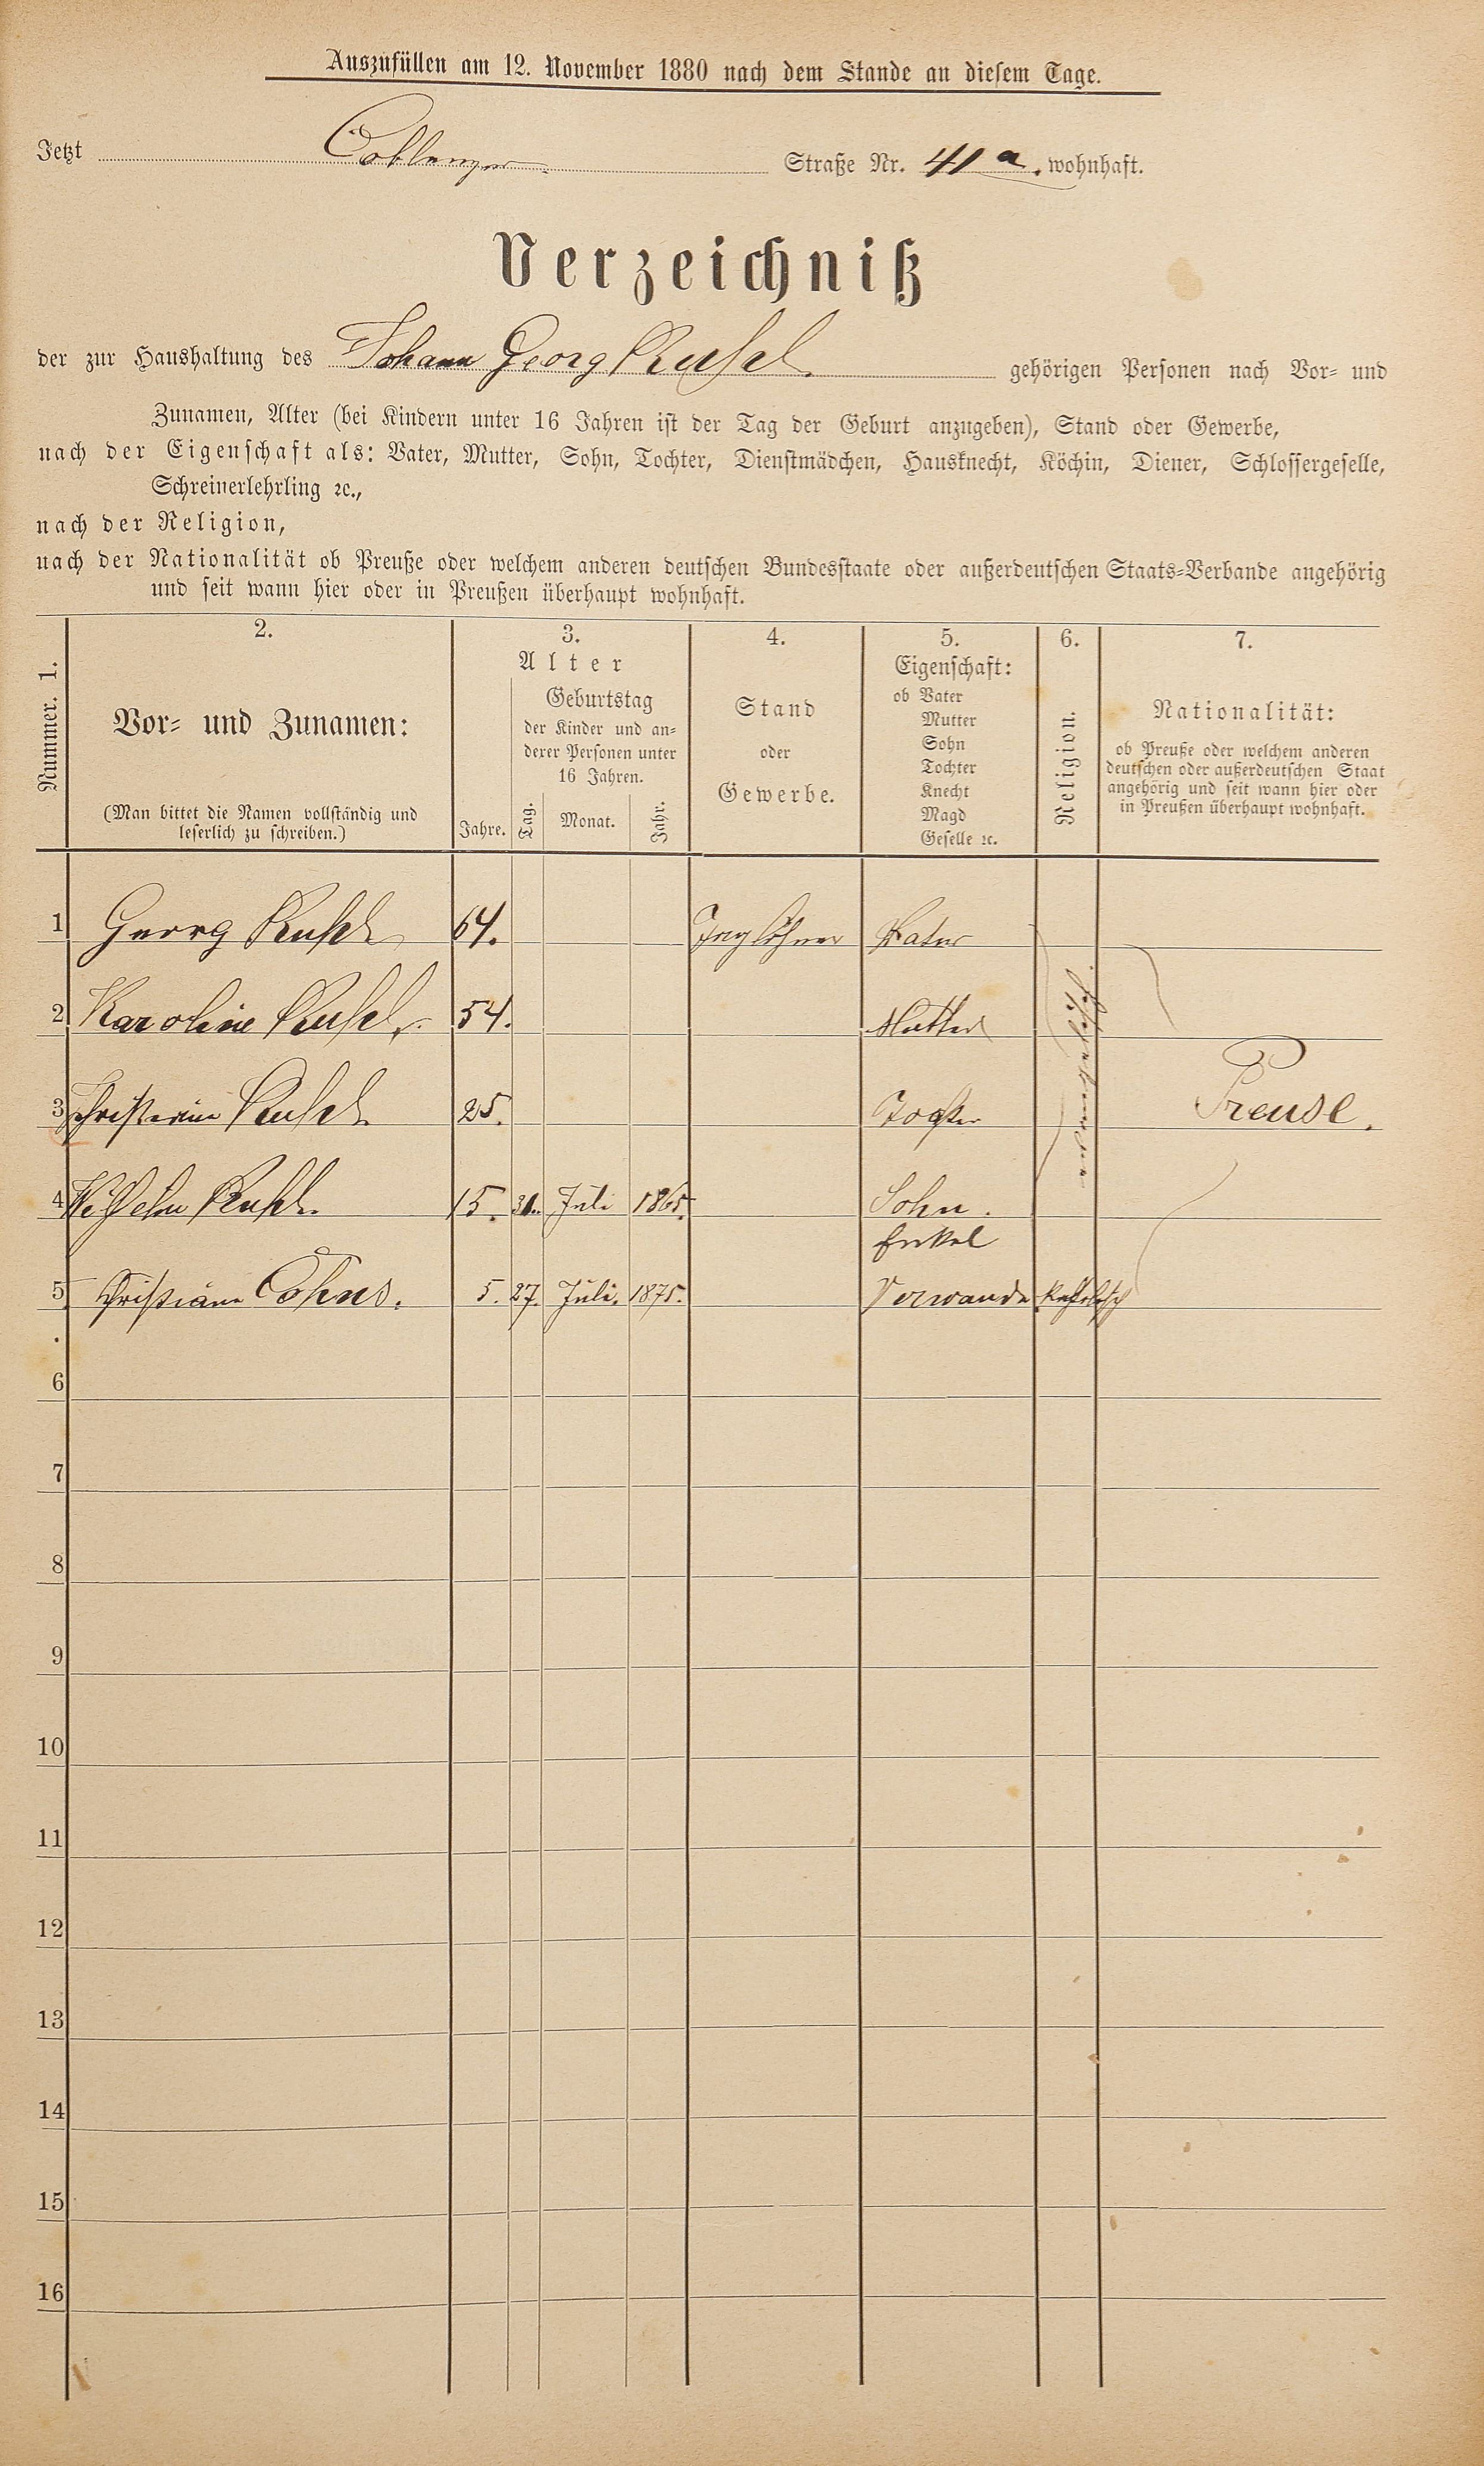 Auszufüllen am 12. November 1880 nach dem Stande an diesem Tage.
Jetzt Coblenzer Straße Nr. 41a. wohnhaft.
Verzeichniß
der zur Haushaltung des Johann Georg gehörigen Personen nach Vor- und
Zunamen, Alter (bei Kindern unter 16 Jahren ist der Tag der Geburt anzugeben), Stand oder Gewerbe,
nach der Eigenschaft als: Vater, Mutter, Sohn, Tochter, Dienstmädchen, Hausknecht, Köchin, Diener, Schlossergeselle,
Schreinerlehrling ꝛc.,
nach der Religion,
nach der Nationalität ob Preuße oder welchem anderen deutschen Bundesstaate oder außerdeutschen Staats-Verbande angehörig
und seit wann hier oder in Preußen überhaupt wohnhaft.
Nummer. 1.
2.
Vor- und Zunamen:
(Man bittet die Namen vollständig und
leserlich zu schreiben.)
3.
Alter
Jahre.
Geburtstag
der Kinder und an-
derer Personen unter
16 Jahren.
Tag. Monat. Jahr.
4.
Stand
oder
Gewerbe.
5.
Eigenschaft:
ob Vater
Mutter
Sohn
Tochter
Knecht
Magd
Geselle ꝛc.
6.
Religion.
7.
Nationalität:
ob Preuße oder welchem anderen
deutschen oder außerdeutschen Staat
angehörig und seit wann hier oder
in Preußen überhaupt wohnhaft.
1 Georg 64. Taglöhner Vater
2 Karoline 54. Mutter
evangelisch.
3 25. Tochter Preuse.
4 Wilhelm 15. Juli 1865. Sohn.
Enkel
5 Christian 5. 27. Juli. 1875. Verwande Katholisch
6
7
8
9
10
11
12
13
14
15
16